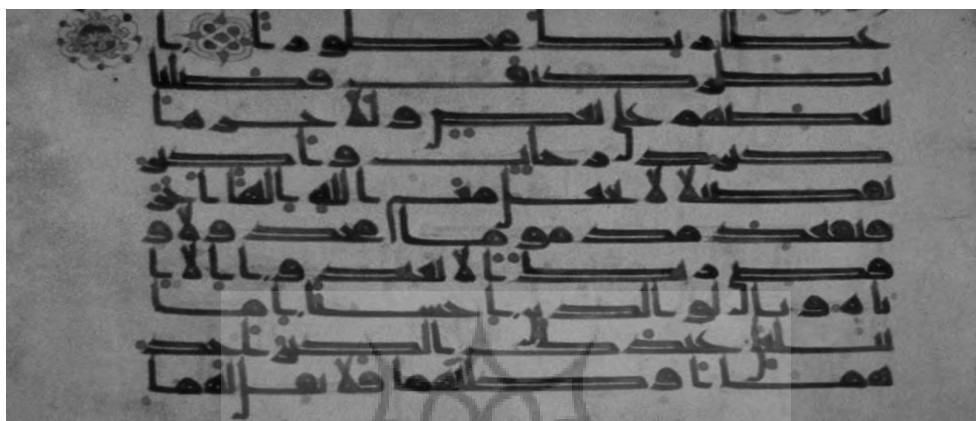 عطا ربك محظورا ا
نظر كيف فضلنا
بعضهم على بعض وللاخرة ا
كبر درجت واكبر
تفضيلا لا تجعل مع الله الها اخر
فتقعد مذموما مخذولا و
قضى ربك الا تعبدوا الا ا
ياه وبالولدين احسنا اما
يبلغن عندك الكبر احد
هما او كلاهما فلا تقل لهما